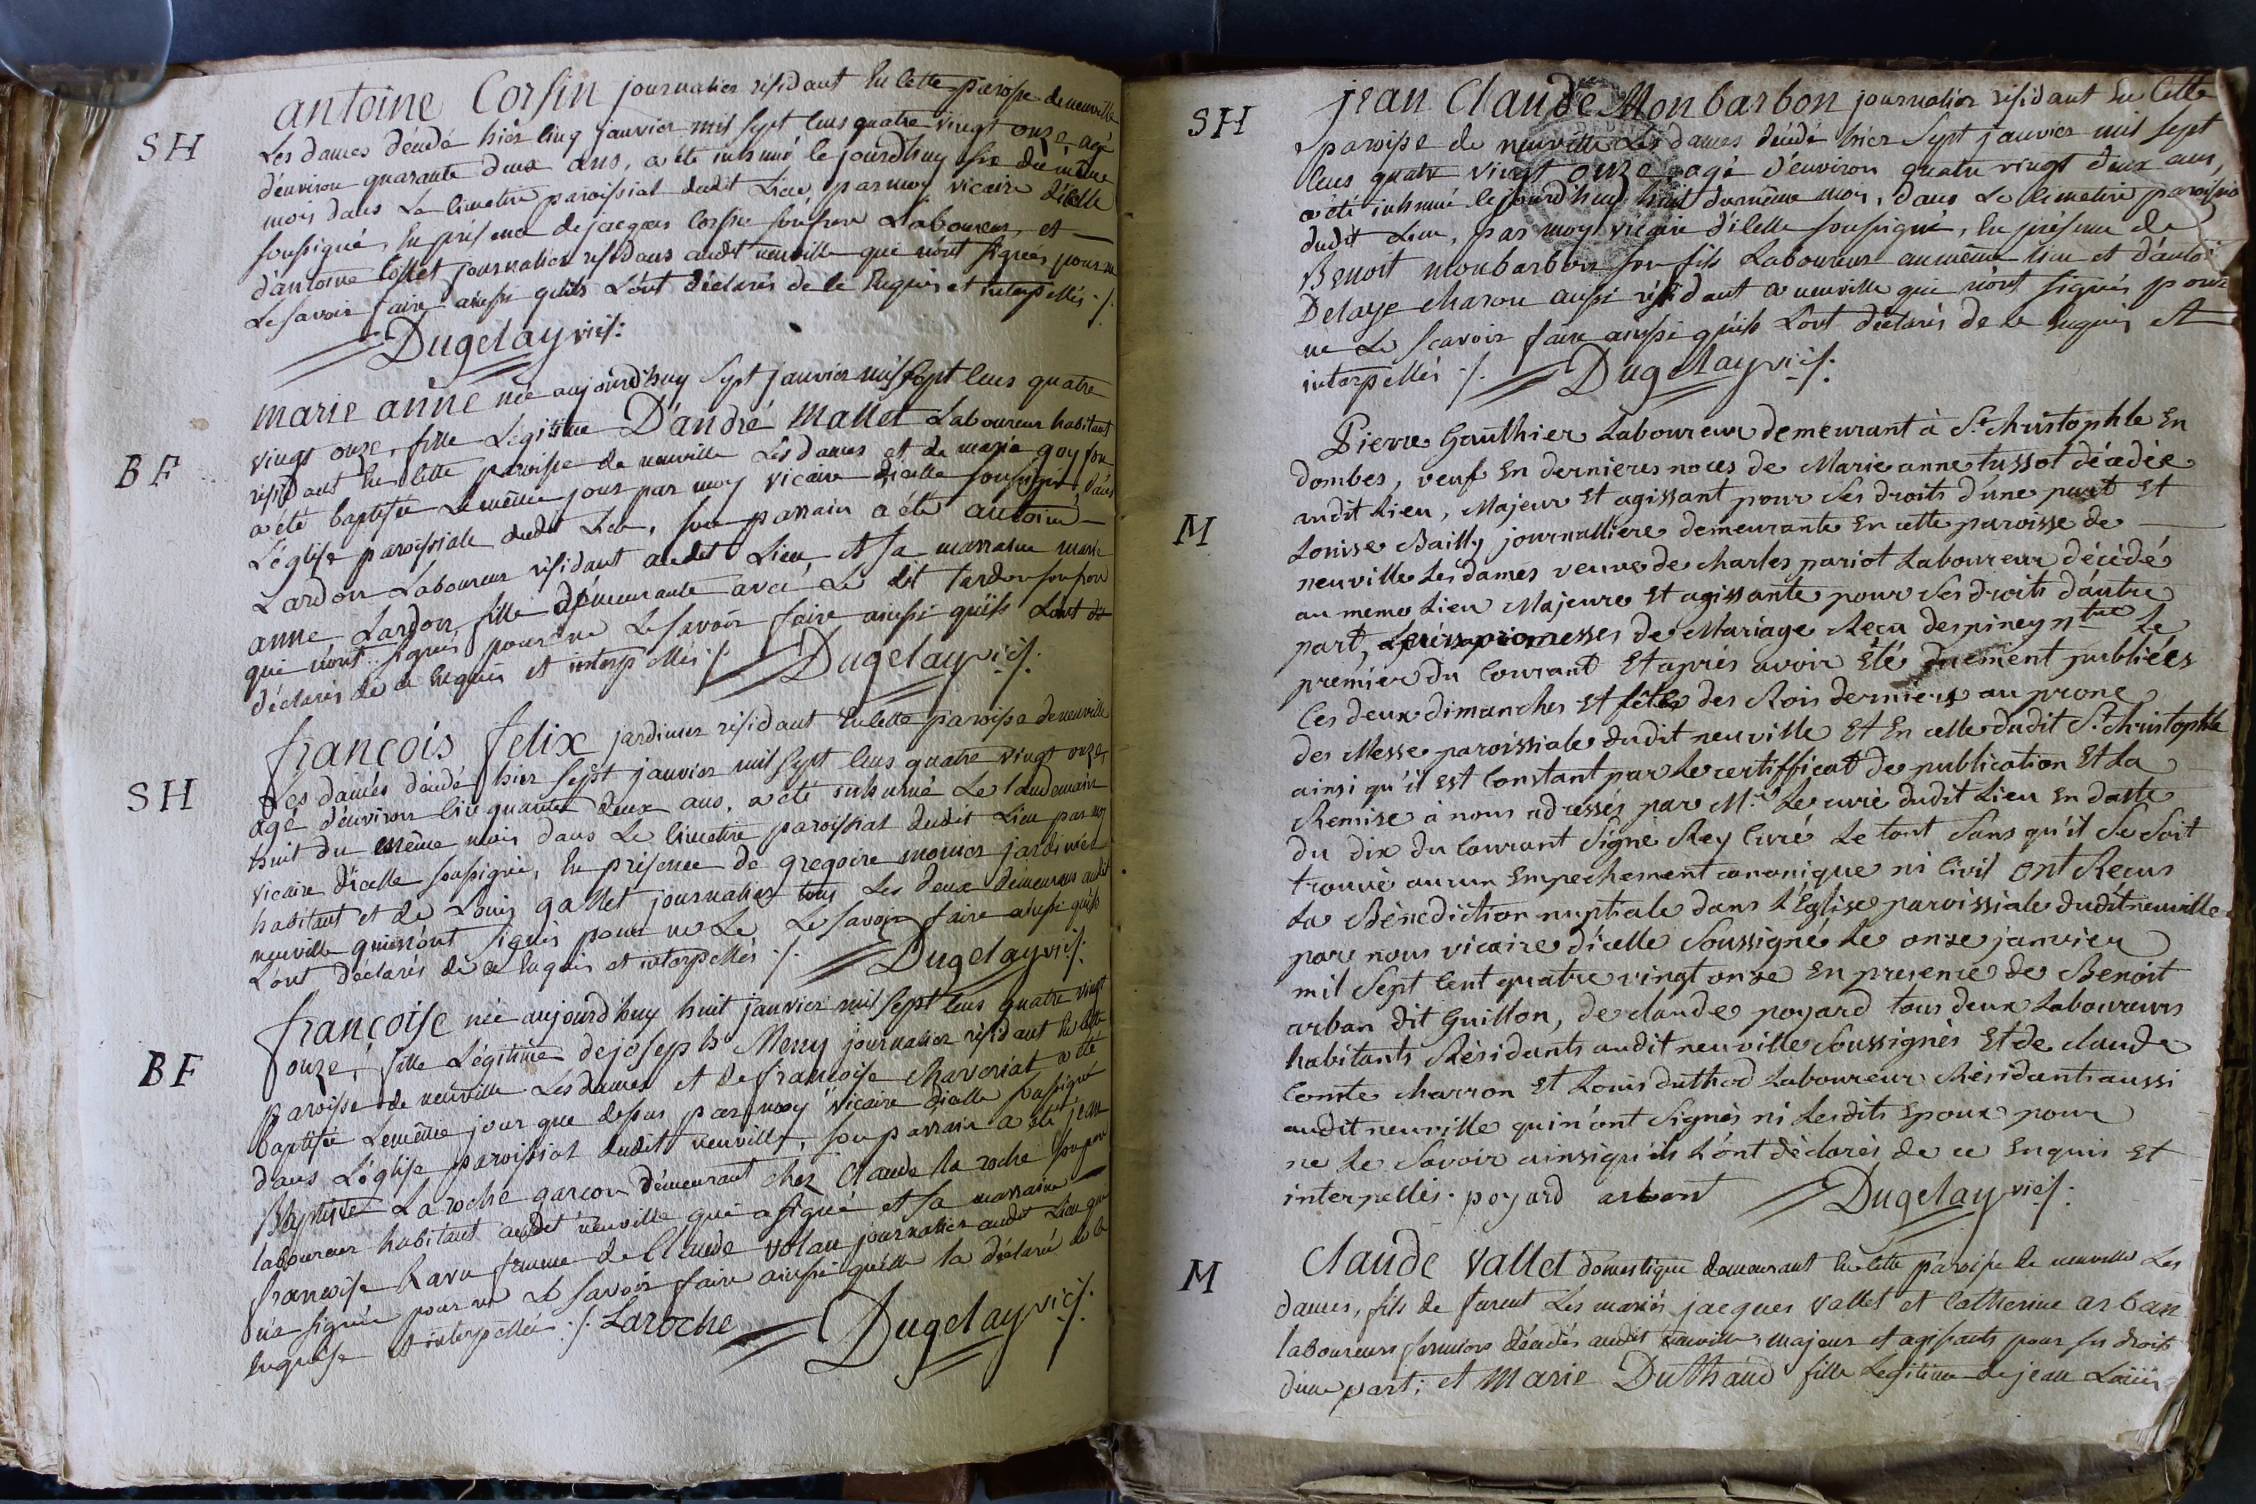 SH
antoine Corsin journalier résidant En Cette paroisse de neuville
Les dames décédé hier Cinq janvier mil sept Cens quatre vingt onze, agé
d'environ quarante deux ans, a été inhumé le jourdhuy six du même
mois dans Le Cimetire paroissial dudit Lieu par moy vicaire d'icelle
soussigné, En présence de jacques Corsin son frere Laboureur, et
d'antoine Collet journalier résidans audit neuville qui n'ont signés pour ne
Le savoir faire ainsi qu'ils L'ont déclarés de ce Enquis et interpellés ./.
Dugelay vic.
BF
marie anne née aujourd'huy Sept janvier mil sept Cens quatre
vingt onze, fille Légitime D'andré Mallet Laboureur habitant
résidant En Cette paroisse de neuville Les dames et de marie goyfon
a été baptisée Le même jour par moy vicaire d'icelle soussigné dans
L'église paroissiale dudit Lieu, son parrain a été antoine
Lardon Laboureur résidant audit Lieu, et sa marraine marie
anne Lardon, fille demeurante avec Le dit Lardon son pere
qui n'ont signés pour ne Le savoir faire ainsi qu'ils L'ont dit
déclarés de ce Enquis et interpellés ./. Dugelay vic.
SH
françois felix jardinier résidant En Cette paroisse de neuville
Les dames décédé hier sept janvier mil sept Cens quatre vingt onze,
agé d'environ Cinquante deux ans, a été inhumé Le Landemain
huit du même mois dans Le Cimetire paroissial dudit Lieu par moy
vicaire d'icelle soussigné, En présence de gregoire monier jardinier
habitant et de Louis gallet journalier tous Les deux demeurans audit
neuville qui n'ont signés pour ne Le Le savoir faire ainsi qu'ils
L'ont déclarés de ce Enquis et interpellés ./. Dugelay vic.
BF
françoise née aujourd'huy huit janvier mil sept Cens quatre vingt
onze, fille Légitime de joseph Meny journalier résidant En Cette
paroisse de neuville Les dames et de françoise Charvoriat a été
baptisée Le même jour que dessus par moy vicaire d'icelle soussigné
dans L'église paroissial dudit neuville, son parrain a été jean
Baptiste Laroche garcon demeurant chez Claude la roche son pere
laboureur habitant audit neuville qui a signé et sa marraine
françoise Ravu femme de Claude volan journalier audit Lieu qui
n'a signée pour ne Le savoir faire ainsi qu'elle la déclaré de ce
Enquise et interpellée ./. Laroche Dugelay vic.
SH
jean Claude Monbarbon journalier résidant En Cette
paroisse de neuville Les dames décédé hier Sept janvier mil sept
Cens quatre vingt onze, agé d'environ quatre vingt deux ans,
a été inhumé le jourd'huy huit du même mois, dans Le Cimetire paroissia
dudit Lieu, par moy vicaire d'icelle soussigné, En présence de
Benoit Monbarbon son fils Laboureur au même lieu et d'antoi
Delaye charon aussi résidant a neuville qui n'ont signés pour
ne Le Scavoir faire ainsi qu'ils L'ont déclarés de ce Enquis et
interpellés ./. Dugelay vic.
M
Pierre Gauthier Laboureur demeurant à St. Christophle En
dombes, veuf En dernieres noces de Marie anne tussot décédée
audit Lieu, Majeur Et agissant pour Ses droits d'une part Et
Louise Bailly journalliere demeurante En cette paroisse de
neuville Les dames veuve de charles pariot Laboureur décédé
au meme Lieu Majeure Et agissante pour Ses droits d'autre
part, Leurs promesses de Mariage Recu despiney ntre Le
prémier du Courant Et aprés avoir Eté duement publiées
Ces deux dimanches Et fête des Rois derniers au prone
des Messe paroissiale dudit neuville Et En celle dudit St. Christophle
ainsi qu'il Est Constant par Le certifficat de publication Et La
Remise à nous adressés par Mr. Le curé dudit Lieu En datte
du dix du Courant Signé Rey Curé Le tout Sans qu'il Se Soit
trouvé aucun Empechement canonique ni Civil ont Recus
La Bénediction nuptiale dans L'Eglise paroissiale dudit neuville
par nous vicaire d'icelle Soussigné Le onze janvier
mil Sept Cent quatre vingt onze En presence de Benoit
arban dit Guillon, de claude poyard tous deux Laboureurs
habitants Résidants audit neuville Soussignés Et de claude
Comte charron Et Louis duthod Laboureur Résidants aussi
audit neuville qui n'ont Signés ni Lesdits Epoux pour
ne Le Savoir ainsi qu'ils L'ont déclarés de ce Enquis Et
interpellés. poyard arbant Dugelay vic.
M
Claude Vallet domestique demeurant En Cette paroisse de neuville Les
dames, fils de furent Les mariés jacques Vallet et Catherine arban
laboureurs fermiers décédés audit neuville, majeur et agissants pour ses droits
d'une part; et Marie Duthaud fille Legitime de jean Louis